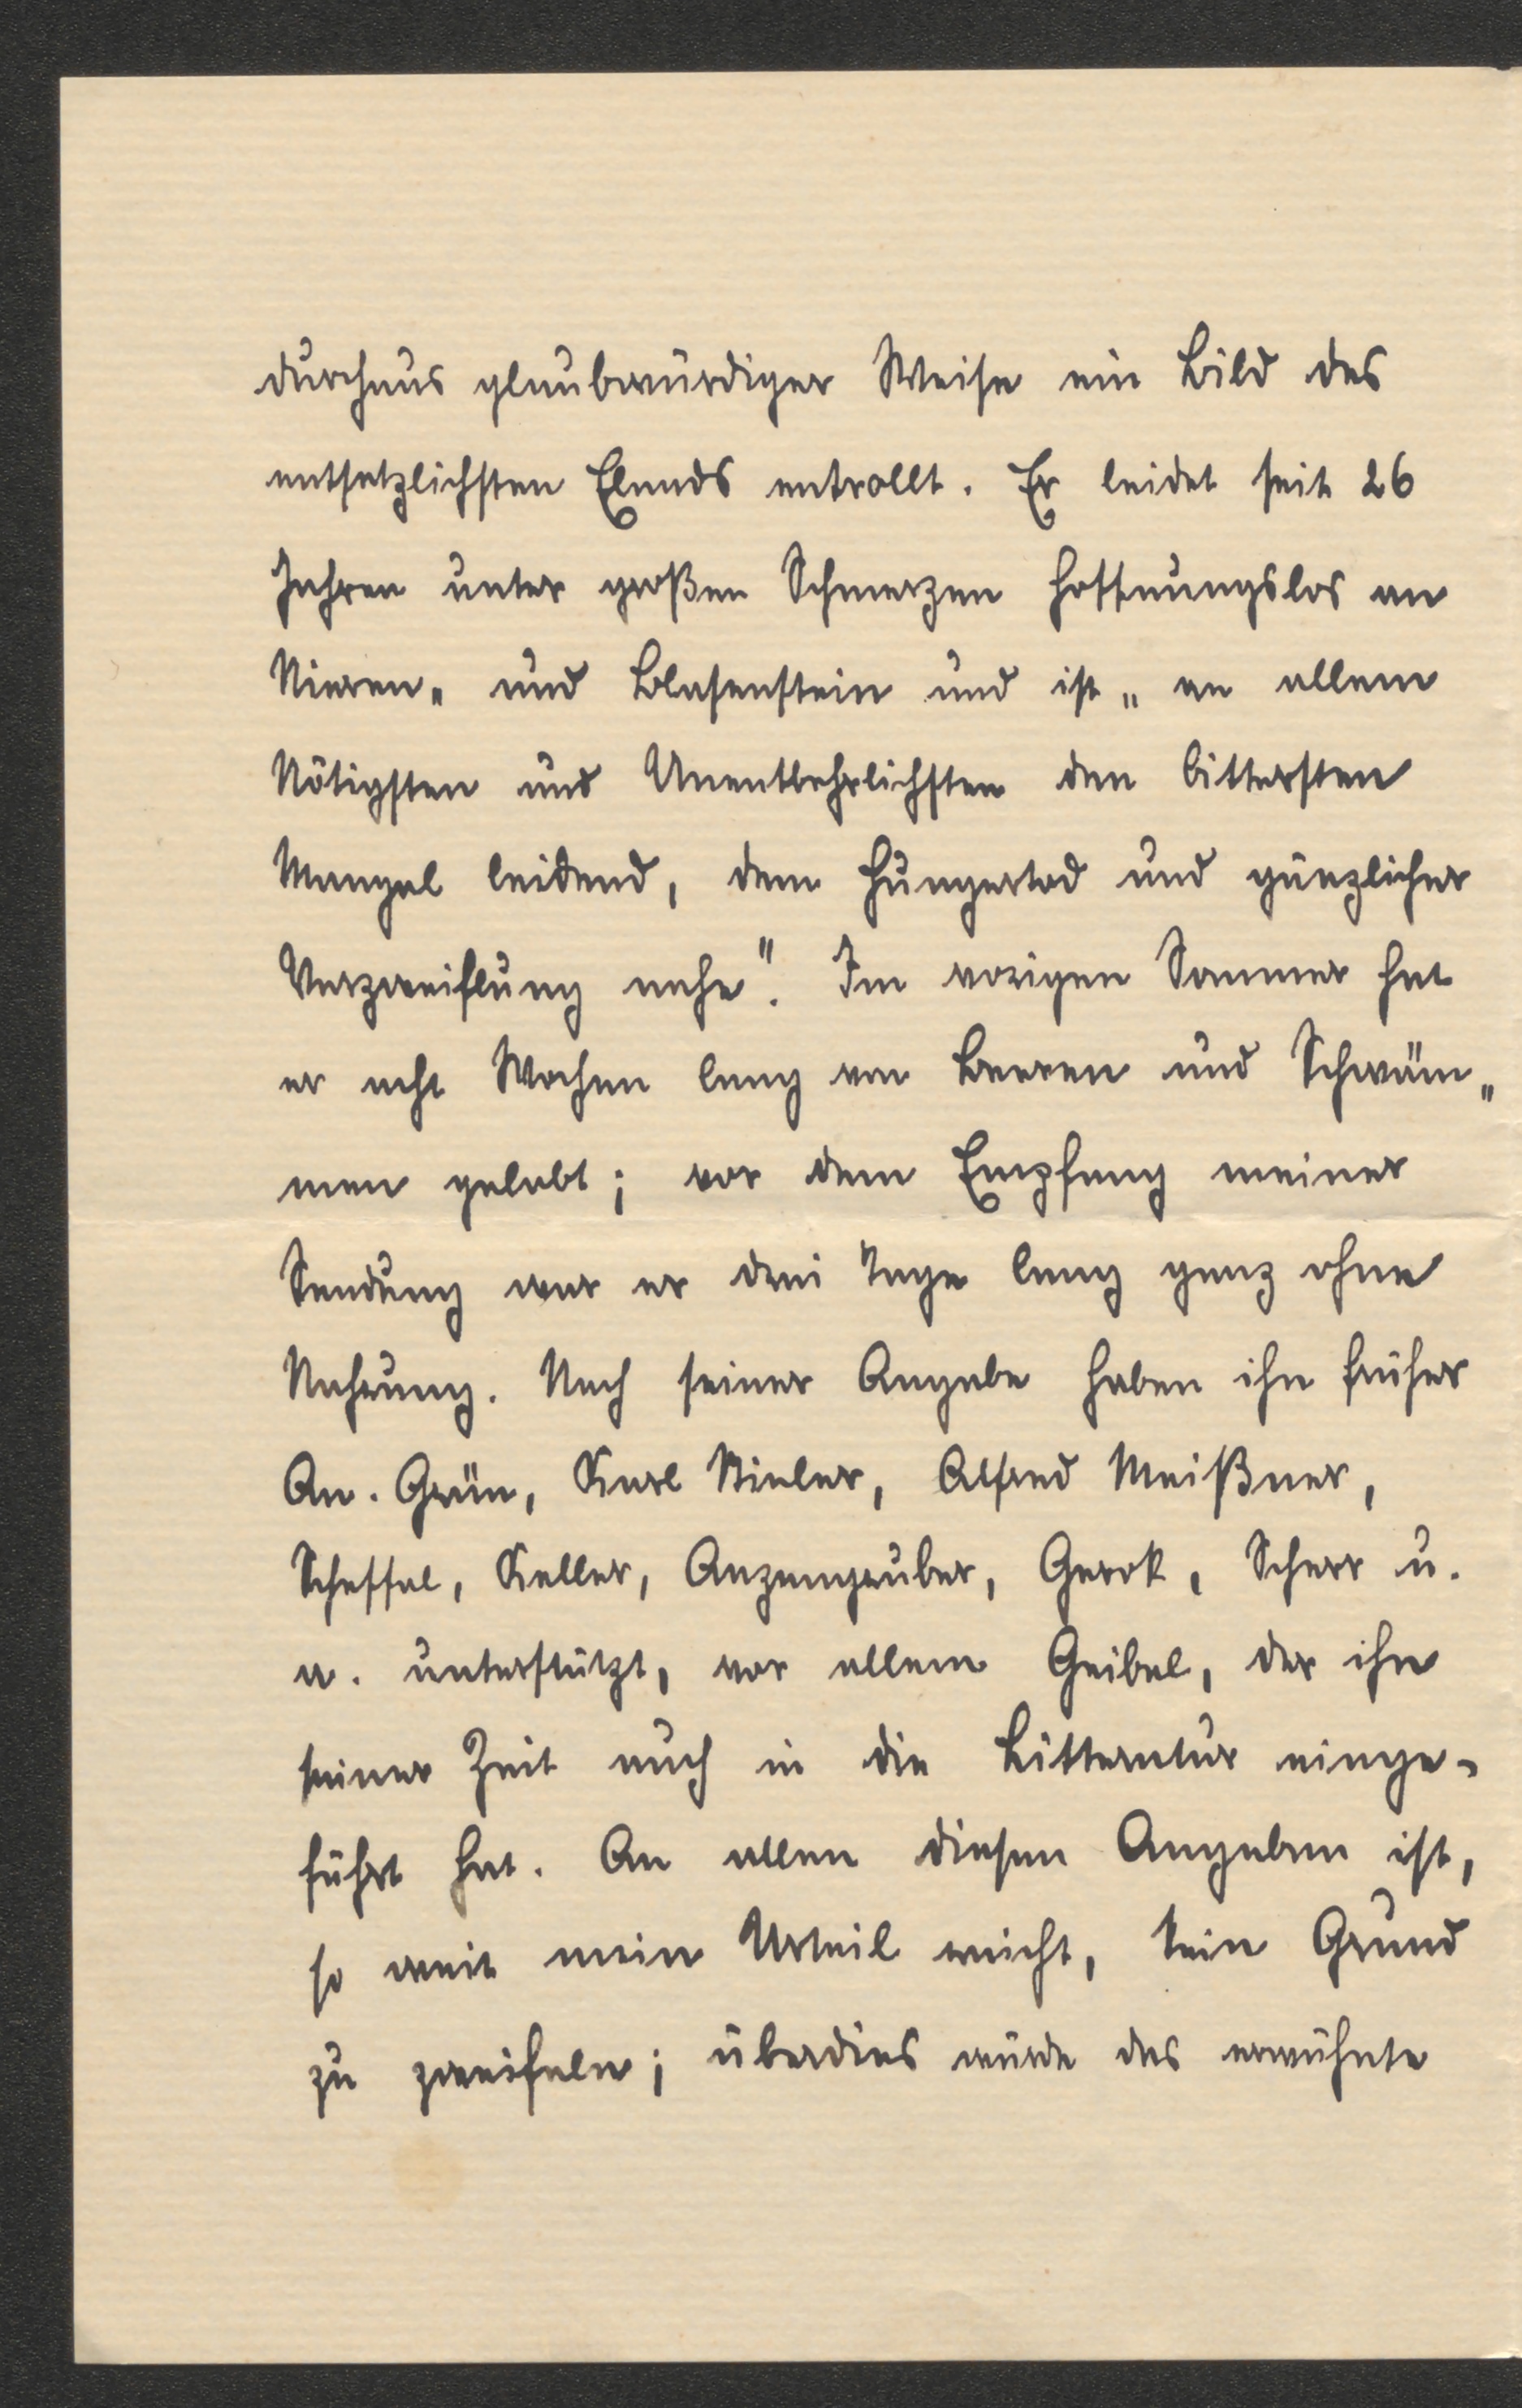 durchaus glaubwürdiger Weise ein Bild des
entsetzlichsten Elends entrollt. Er leidet seit 26
Jahren unter großen Schmerzen hoffnungslos an
Nieren- und Blasenstein und ist „an allem
Nötigsten und Unentbehrlichsten den bittersten
Mangel leidend, dem Hungertod und gänzlicher
Verzweiflung nahe“. Im vorigen Sommer hat
er acht Wochen lang von Beeren und Schwäm-
men gelebt; vor dem Empfang meiner
Sendung war er drei Tage lang ganz ohne
Nahrung. Nach seiner Angabe haben ihn früher
An. Grün, Karl Stieler, Alfred Meißner,
Scheffel, Keller, Anzengruber, Gerok, Scherr u.
a. unterstützt, vor allem Geibel, der ihn
seiner Zeit auch in die Litteratur einge-
führt hat. An allen diesen Angaben ist,
so weit mein Urteil reicht, kein Grund
zu zweifeln; überdies würde das erwähnte